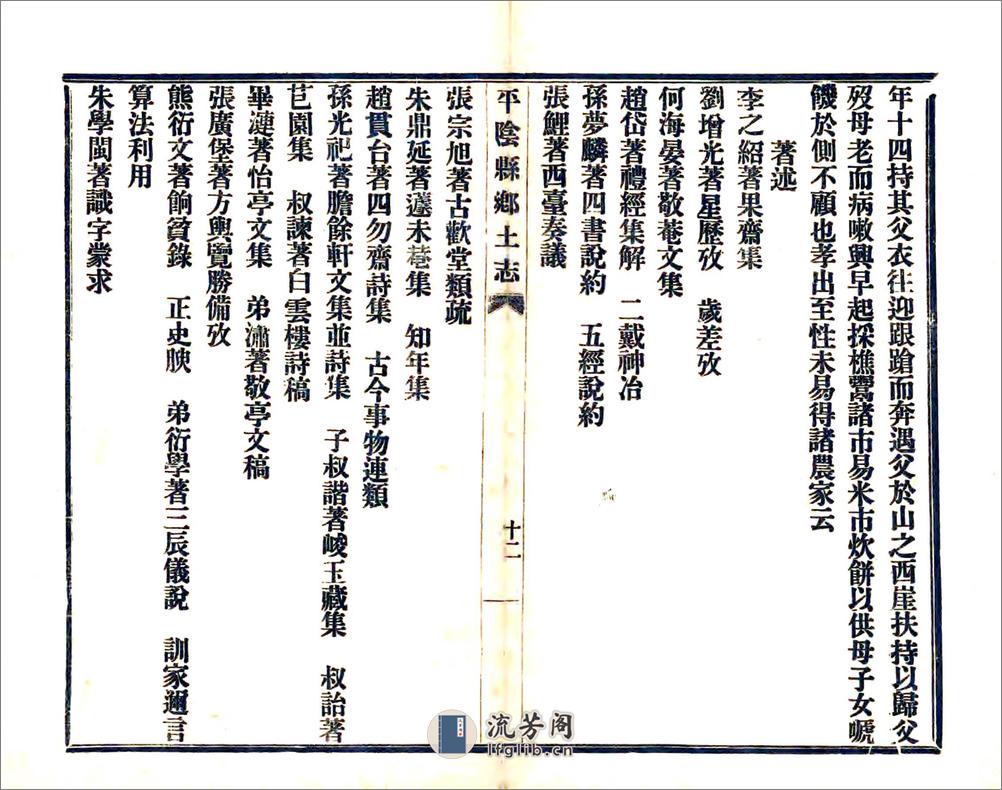 年十四持其父衣往迎踉蹌而奔遇父於山之西崖扶持以歸父
歿母老而病嗽興早起採樵鬻諸市易米市炊餅以供母子女嗁
饑於側不顧也孝出至性未易得諸農家云
著述
李之紹著果齋集
劉增光著星歷攷　歲差攷
何海晏著敬菴文集
趙岱著禮經集解　二戴神冶
孫夢麟著四書說約　五經說約
張鯉著西臺奏議
平陰縣鄉土志
十二
張宗旭著古歡堂類疏
朱鼎延著蘧未菴集　知年集
趙貫台著四勿齋詩集　古今事物連類
孫光祀著膽餘軒文集並詩集　子叔諧著峻玉藏集　叔詒著
芑園集　叔諫著白雲樓詩稿
畢漣著怡亭文集　弟潚著敬亭文稿
張廣堡著方輿覽勝備攷
熊衍文著餉貧錄　正史腴　弟衍學著三辰儀說　訓家邇言
算法利用
朱學閩著識字蒙求
流芳阁
lfglib.cn